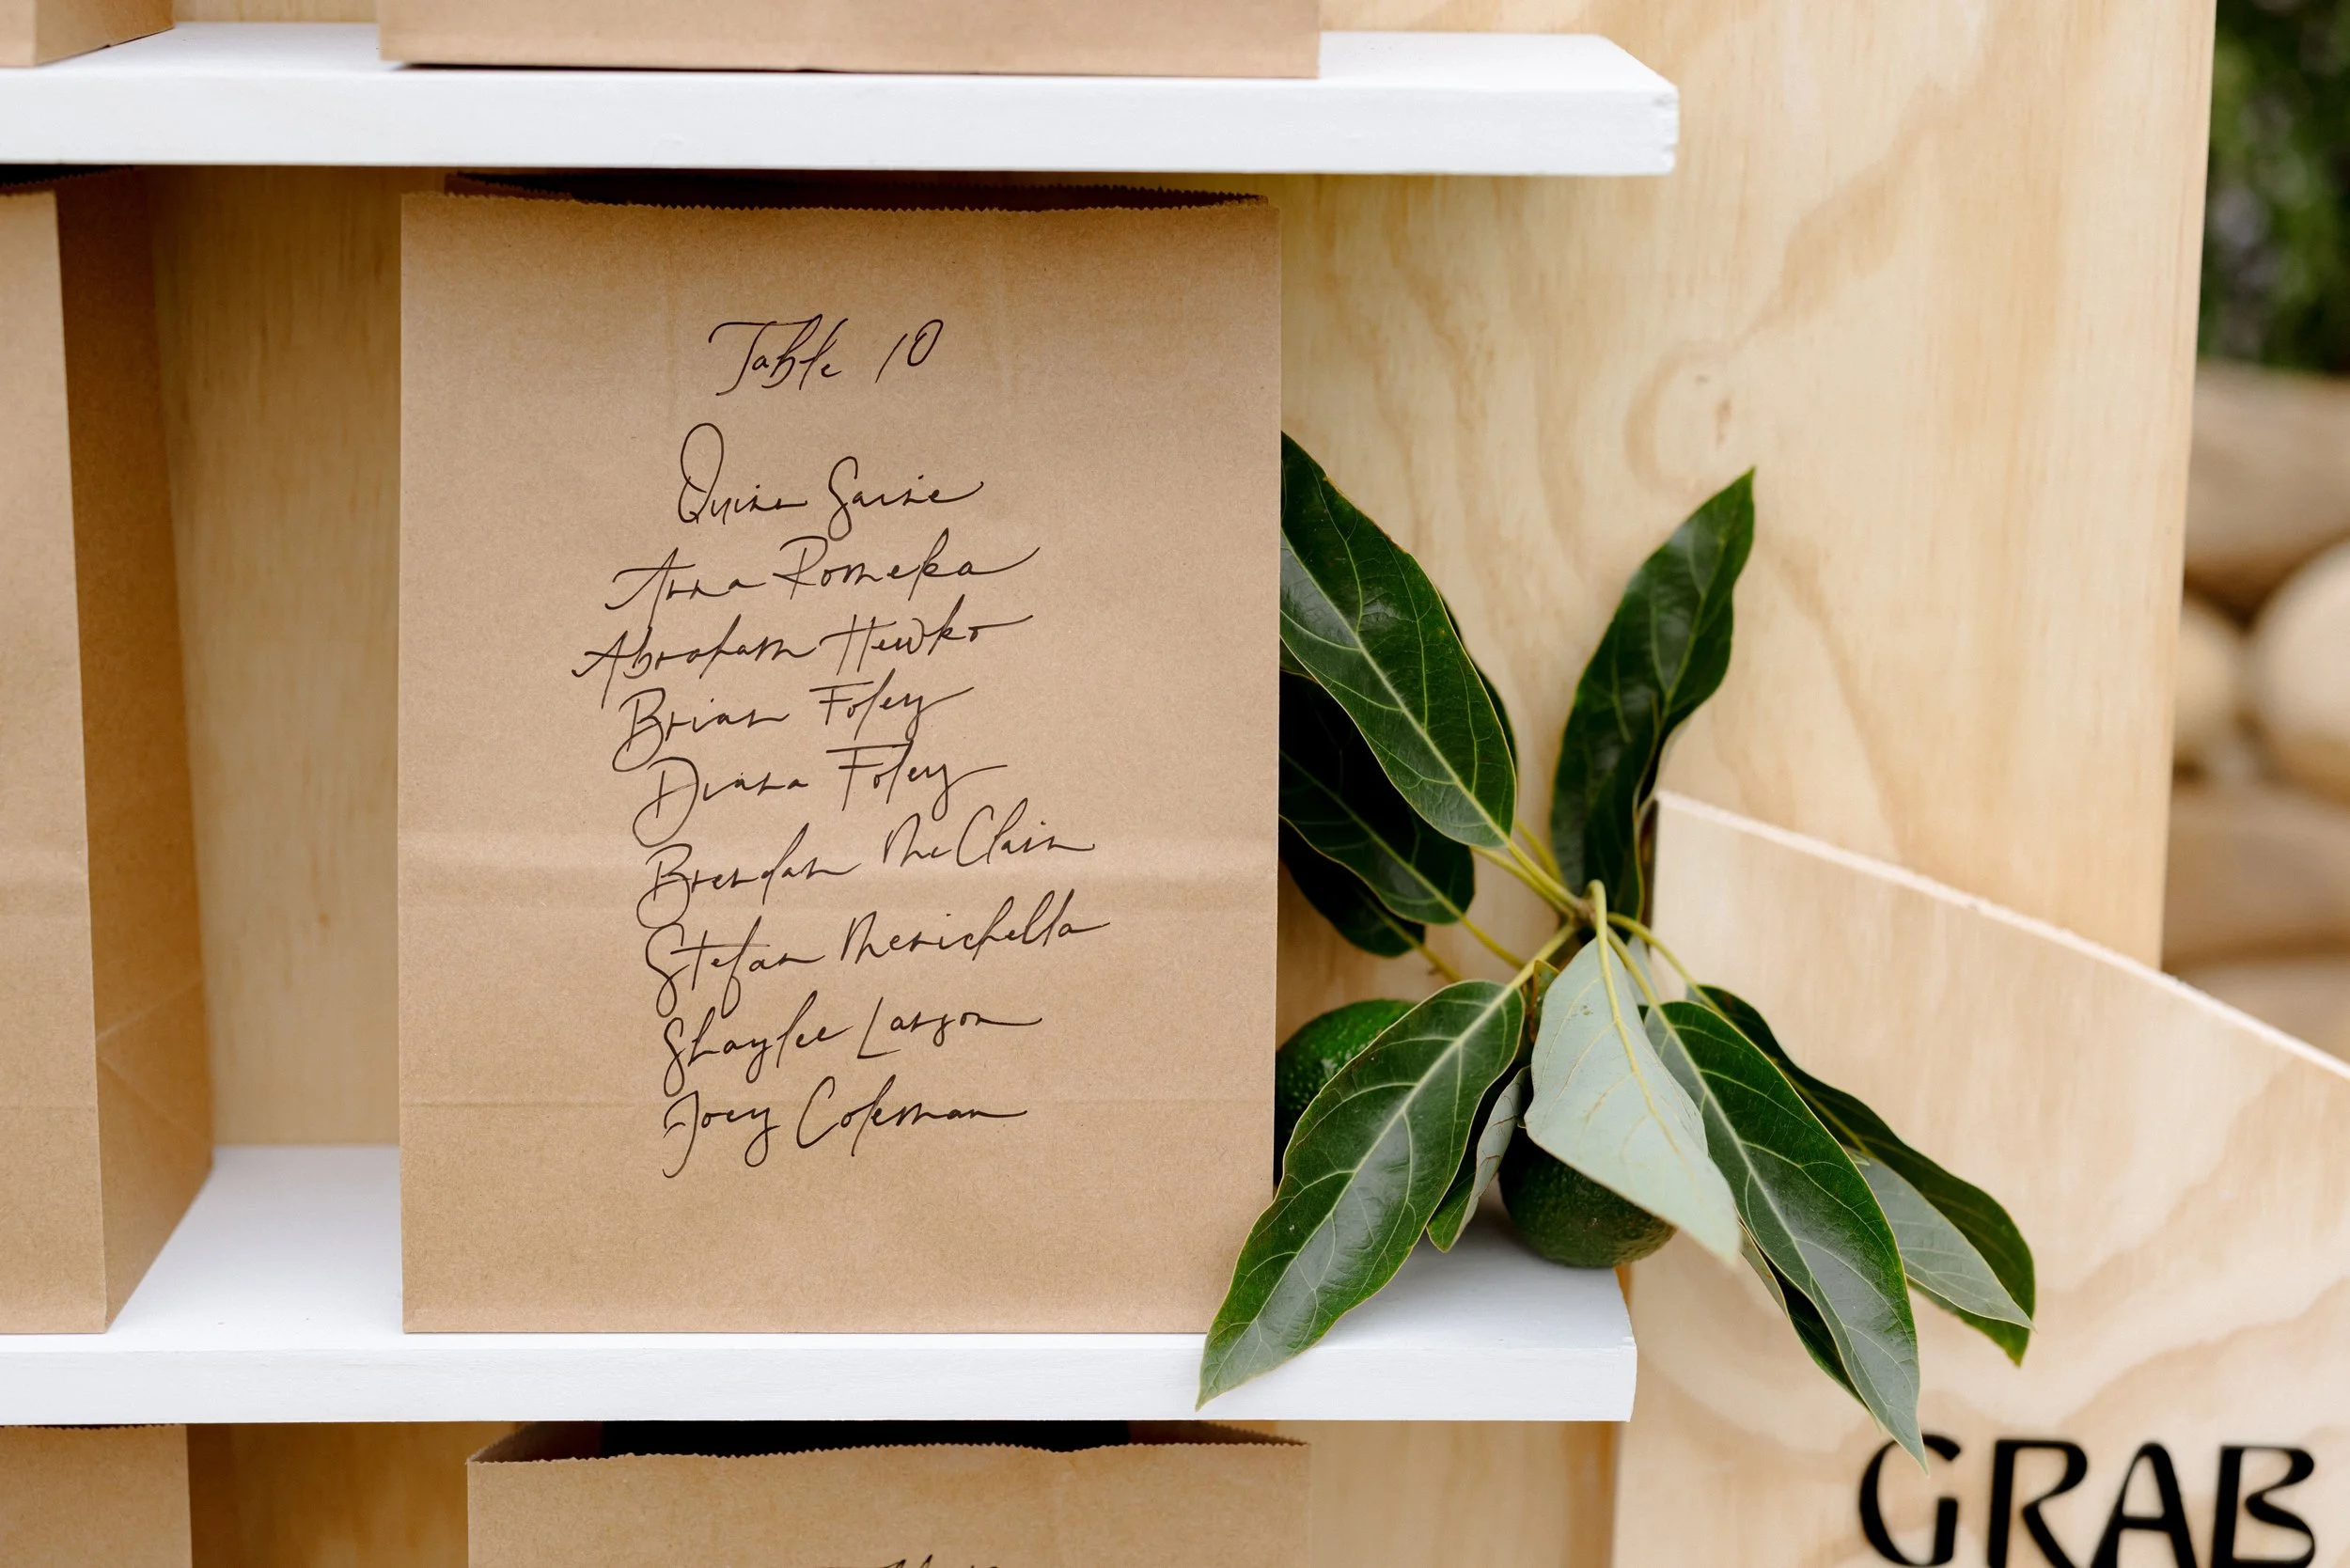 Table 10
Quinn Saisie
Anna Romeka
Abraham Hewko
Brian Foley
Diana Foley
Brendan McClain
Stefan Menichella
Shaylee Larson
Joey Coleman
GRAB